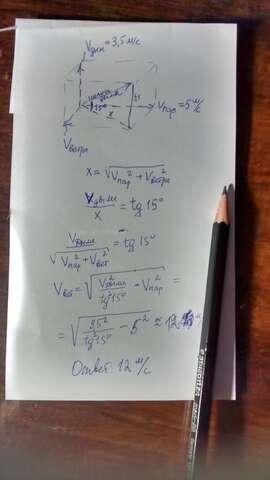 Vдым = 3,5 м/с
15°
x
Vпар = 5 м/с
Vветра
x = √Vпар² + Vветра²
Vдым / x = tg 15°
Vдым / √Vпар² + Vвет² = tg 15°
Vвет = √Vдым² / tg²15° - Vпар² =
= √3,5² / tg²15° - 5² ≈ 12 м/с
Ответ: 12 м/с